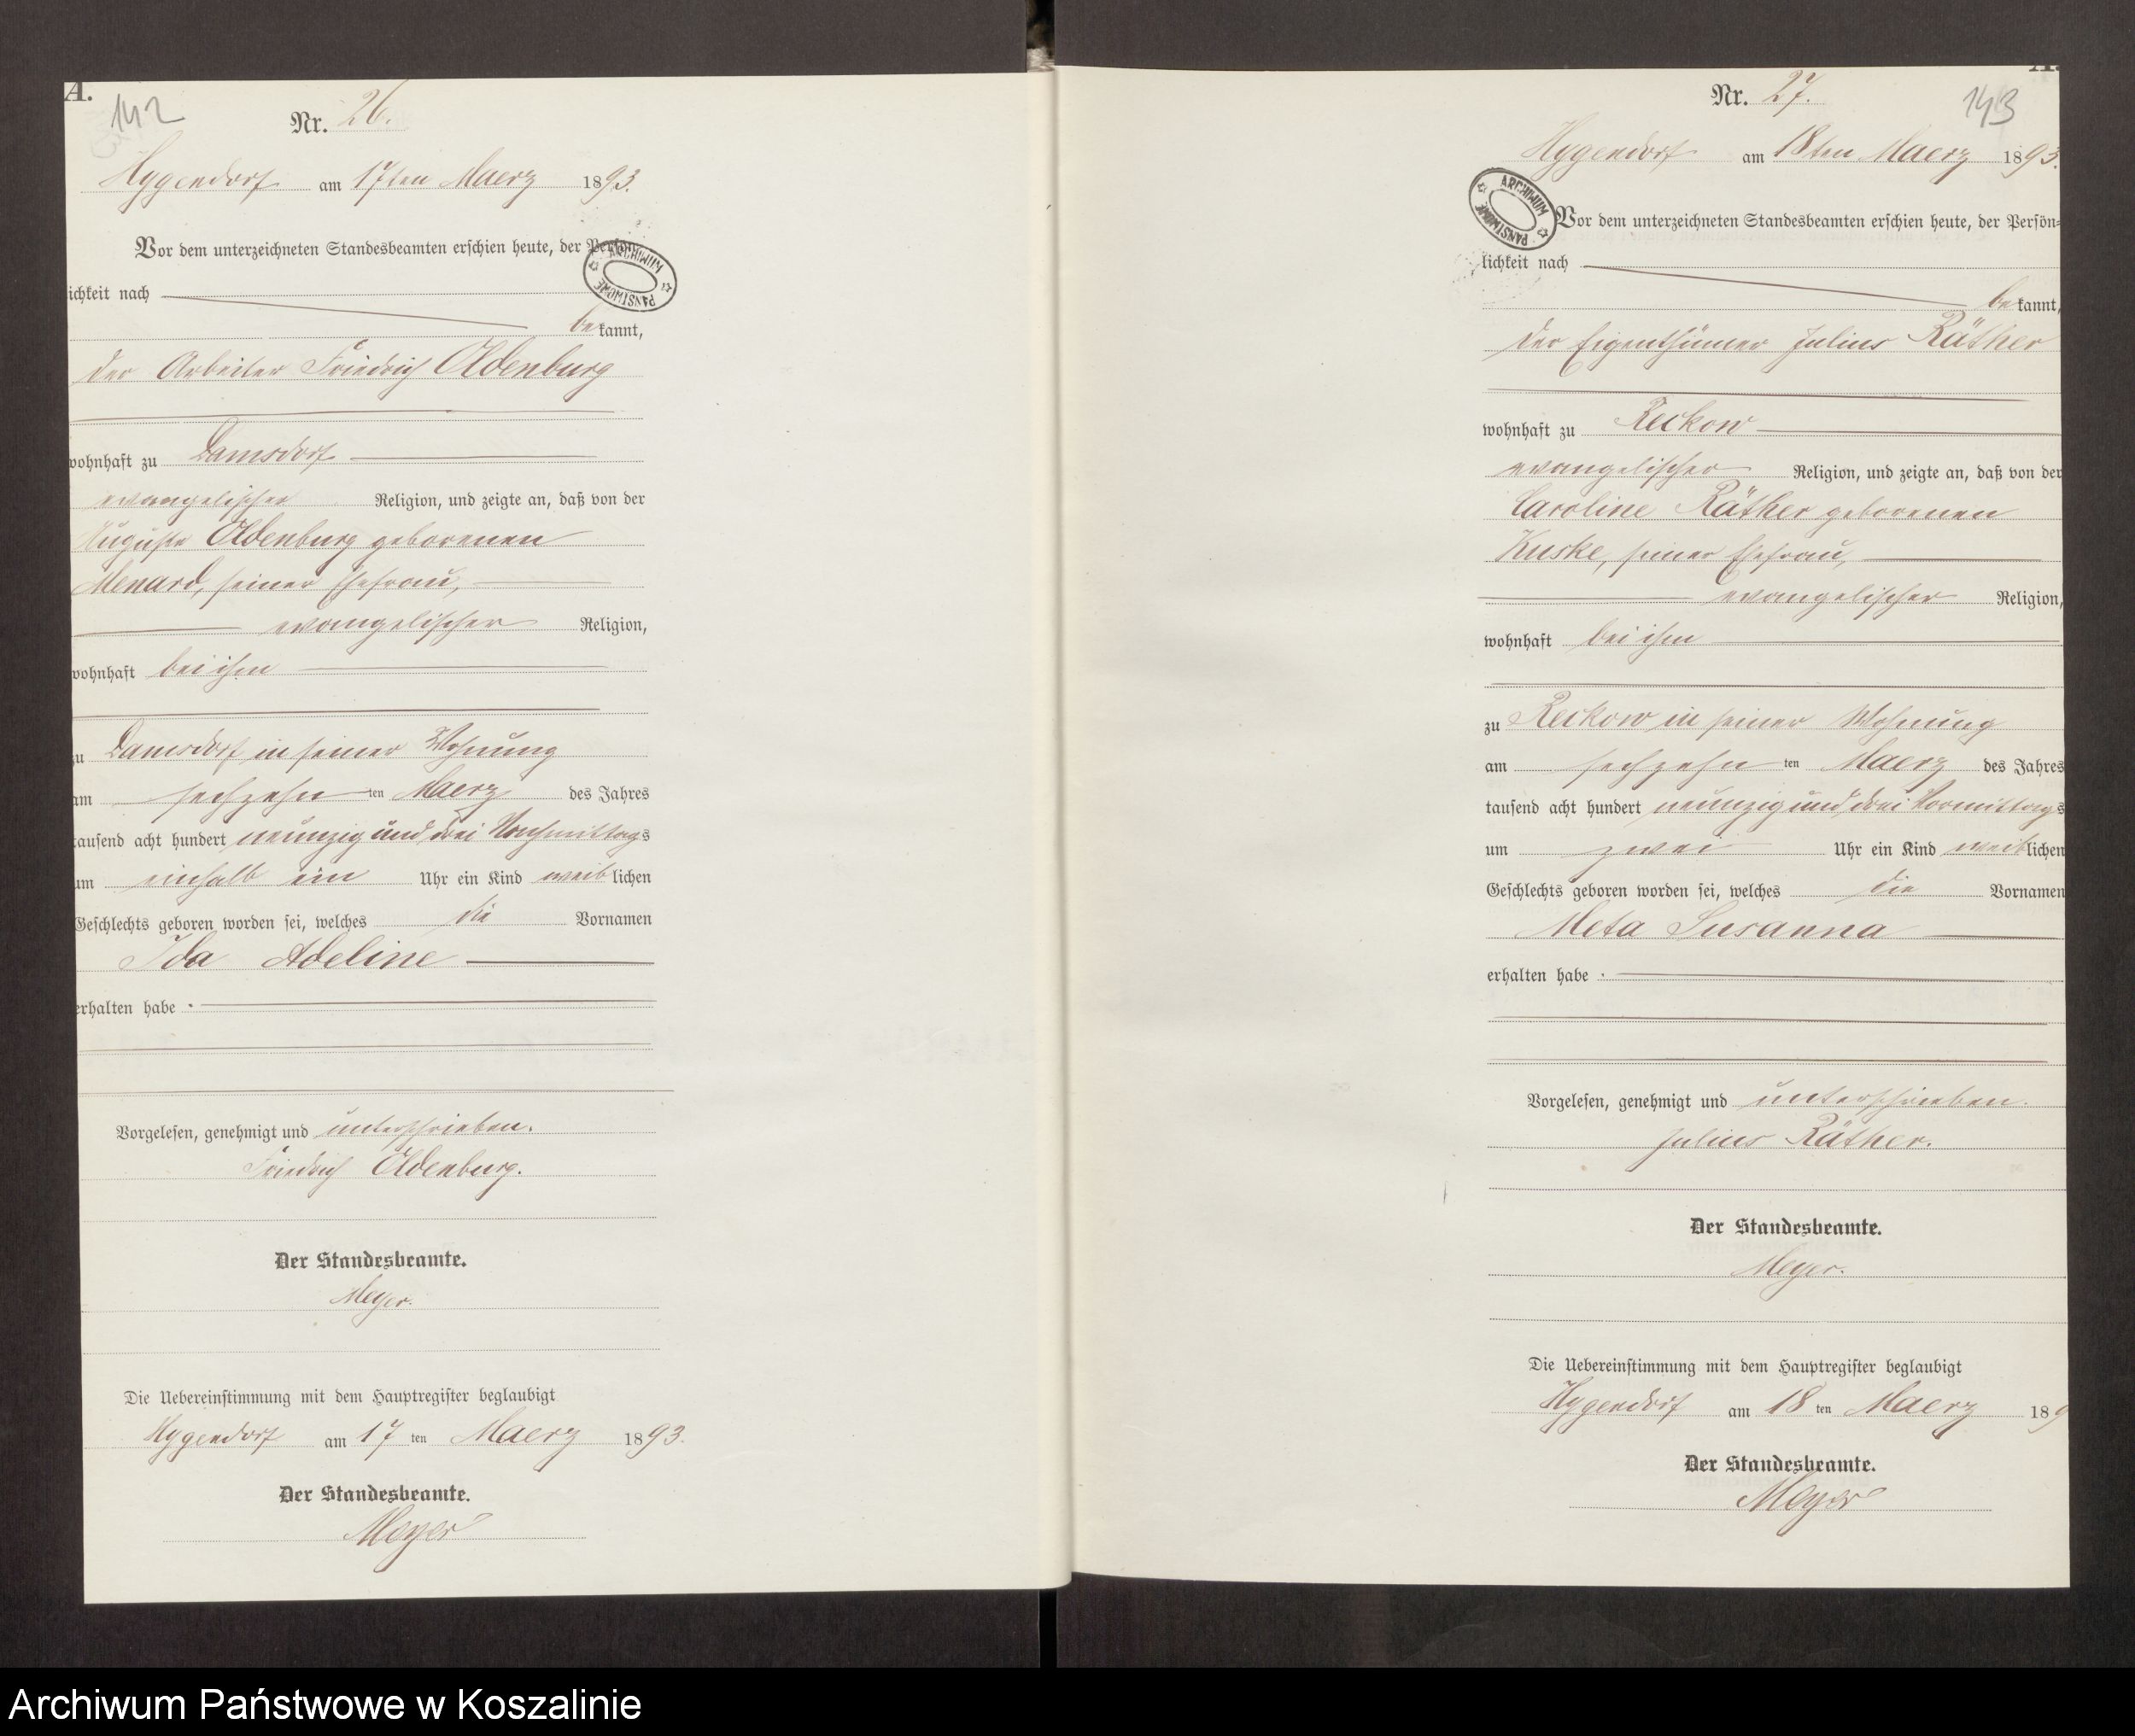 A.
142
Nr. 26.
Hygendorf am 17ten Maerz 1893.
Vor dem unterzeichneten Standesbeamten erschien heute, der Persön-
ARCHIWUM PAŃSTWOWE
lichkeit nach
bekannt,
der Arbeiter Friedrich Oldenburg
wohnhaft zu Damsdorf
evangelischer Religion, und zeigte an, daß von der
Auguste Oldenburg geborenen
Menard, seiner Ehefrau,
evangelischer Religion,
wohnhaft bei ihm
zu Damsdorf in seiner Wohnung
am sechzehn ten Maerz des Jahres
tausend acht hundert neunzig und drei Nachmittags
um einhalb ein Uhr ein Kind weiblichen
Geschlechts geboren worden sei, welches die Vornamen
Ida Adeline
erhalten habe.
Vorgelesen, genehmigt und unterschrieben.
Friedrich Oldenburg.
Der Standesbeamte.
Meyer.
Die Uebereinstimmung mit dem Hauptregister beglaubigt
Hygendorf am 17 ten Maerz 1893.
Der Standesbeamte.
Meyer
A.
Nr. 27.
143
Hygendorf am 18ten Maerz 1893.
ARCHIWUM PAŃSTWOWE
Vor dem unterzeichneten Standesbeamten erschien heute, der Persön-
lichkeit nach
bekannt,
der Eigenthümer Julius Räther
wohnhaft zu Reckow
evangelischer Religion, und zeigte an, daß von der
Caroline Räther geborenen
Kuske, seiner Ehefrau,
evangelischer Religion,
wohnhaft bei ihm
zu Reckow in seiner Wohnung
am sechzehn ten Maerz des Jahres
tausend acht hundert neunzig und drei Vormittags
um zwei Uhr ein Kind weiblichen
Geschlechts geboren worden sei, welches die Vornamen
Meta Susanna
erhalten habe.
Vorgelesen, genehmigt und unterschrieben.
Julius Räther.
Der Standesbeamte.
Meyer.
Die Uebereinstimmung mit dem Hauptregister beglaubigt
Hygendorf am 18 ten Maerz 189
Der Standesbeamte.
Meyer
Archiwum Państwowe w Koszalinie